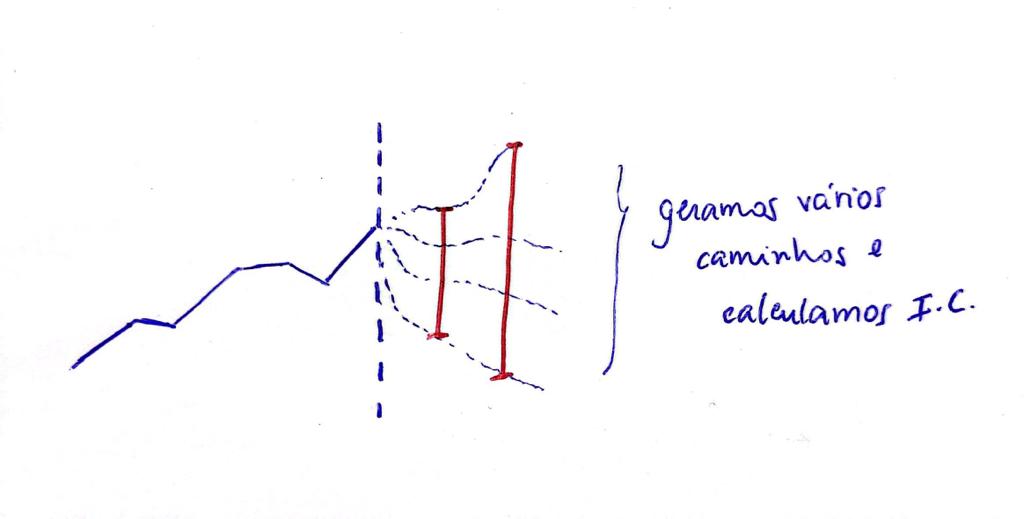 geramos vários
caminhos e
calculamos I.C.